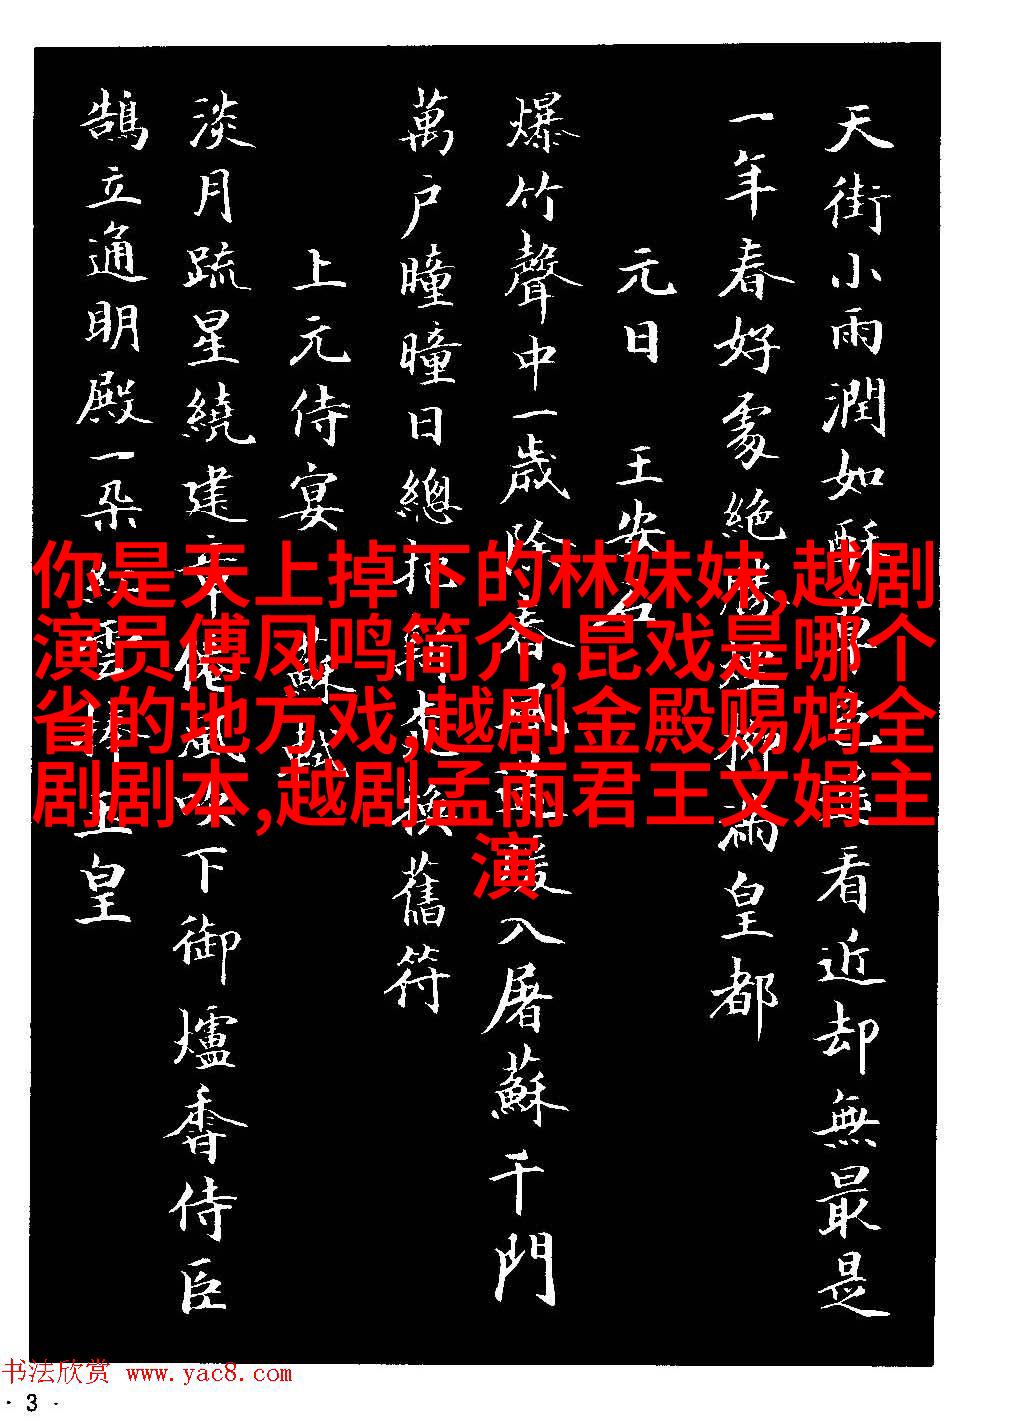 天街小雨潤如酥草色遙看近却無最是
一年春好處絕勝煙柳滿皇都
元日 王安石
爆竹聲中一歲除春風送暖入屠蘇千門
萬戶曈曈日總把新桃換舊符
上元侍宴 蘇軾
淡月疏星繞建章仙風吹下御爐香侍臣
鵠立通明殿一朵紅雲捧玉皇
你是天上掉下的林妹妹,越剧
演员傅凤鸣简介,昆戏是哪个
省的地方戏,越剧金殿赐鸩全
剧剧本,越剧孟丽君王文娟主
演
书法欣赏 www.yac8.com
· 3 ·